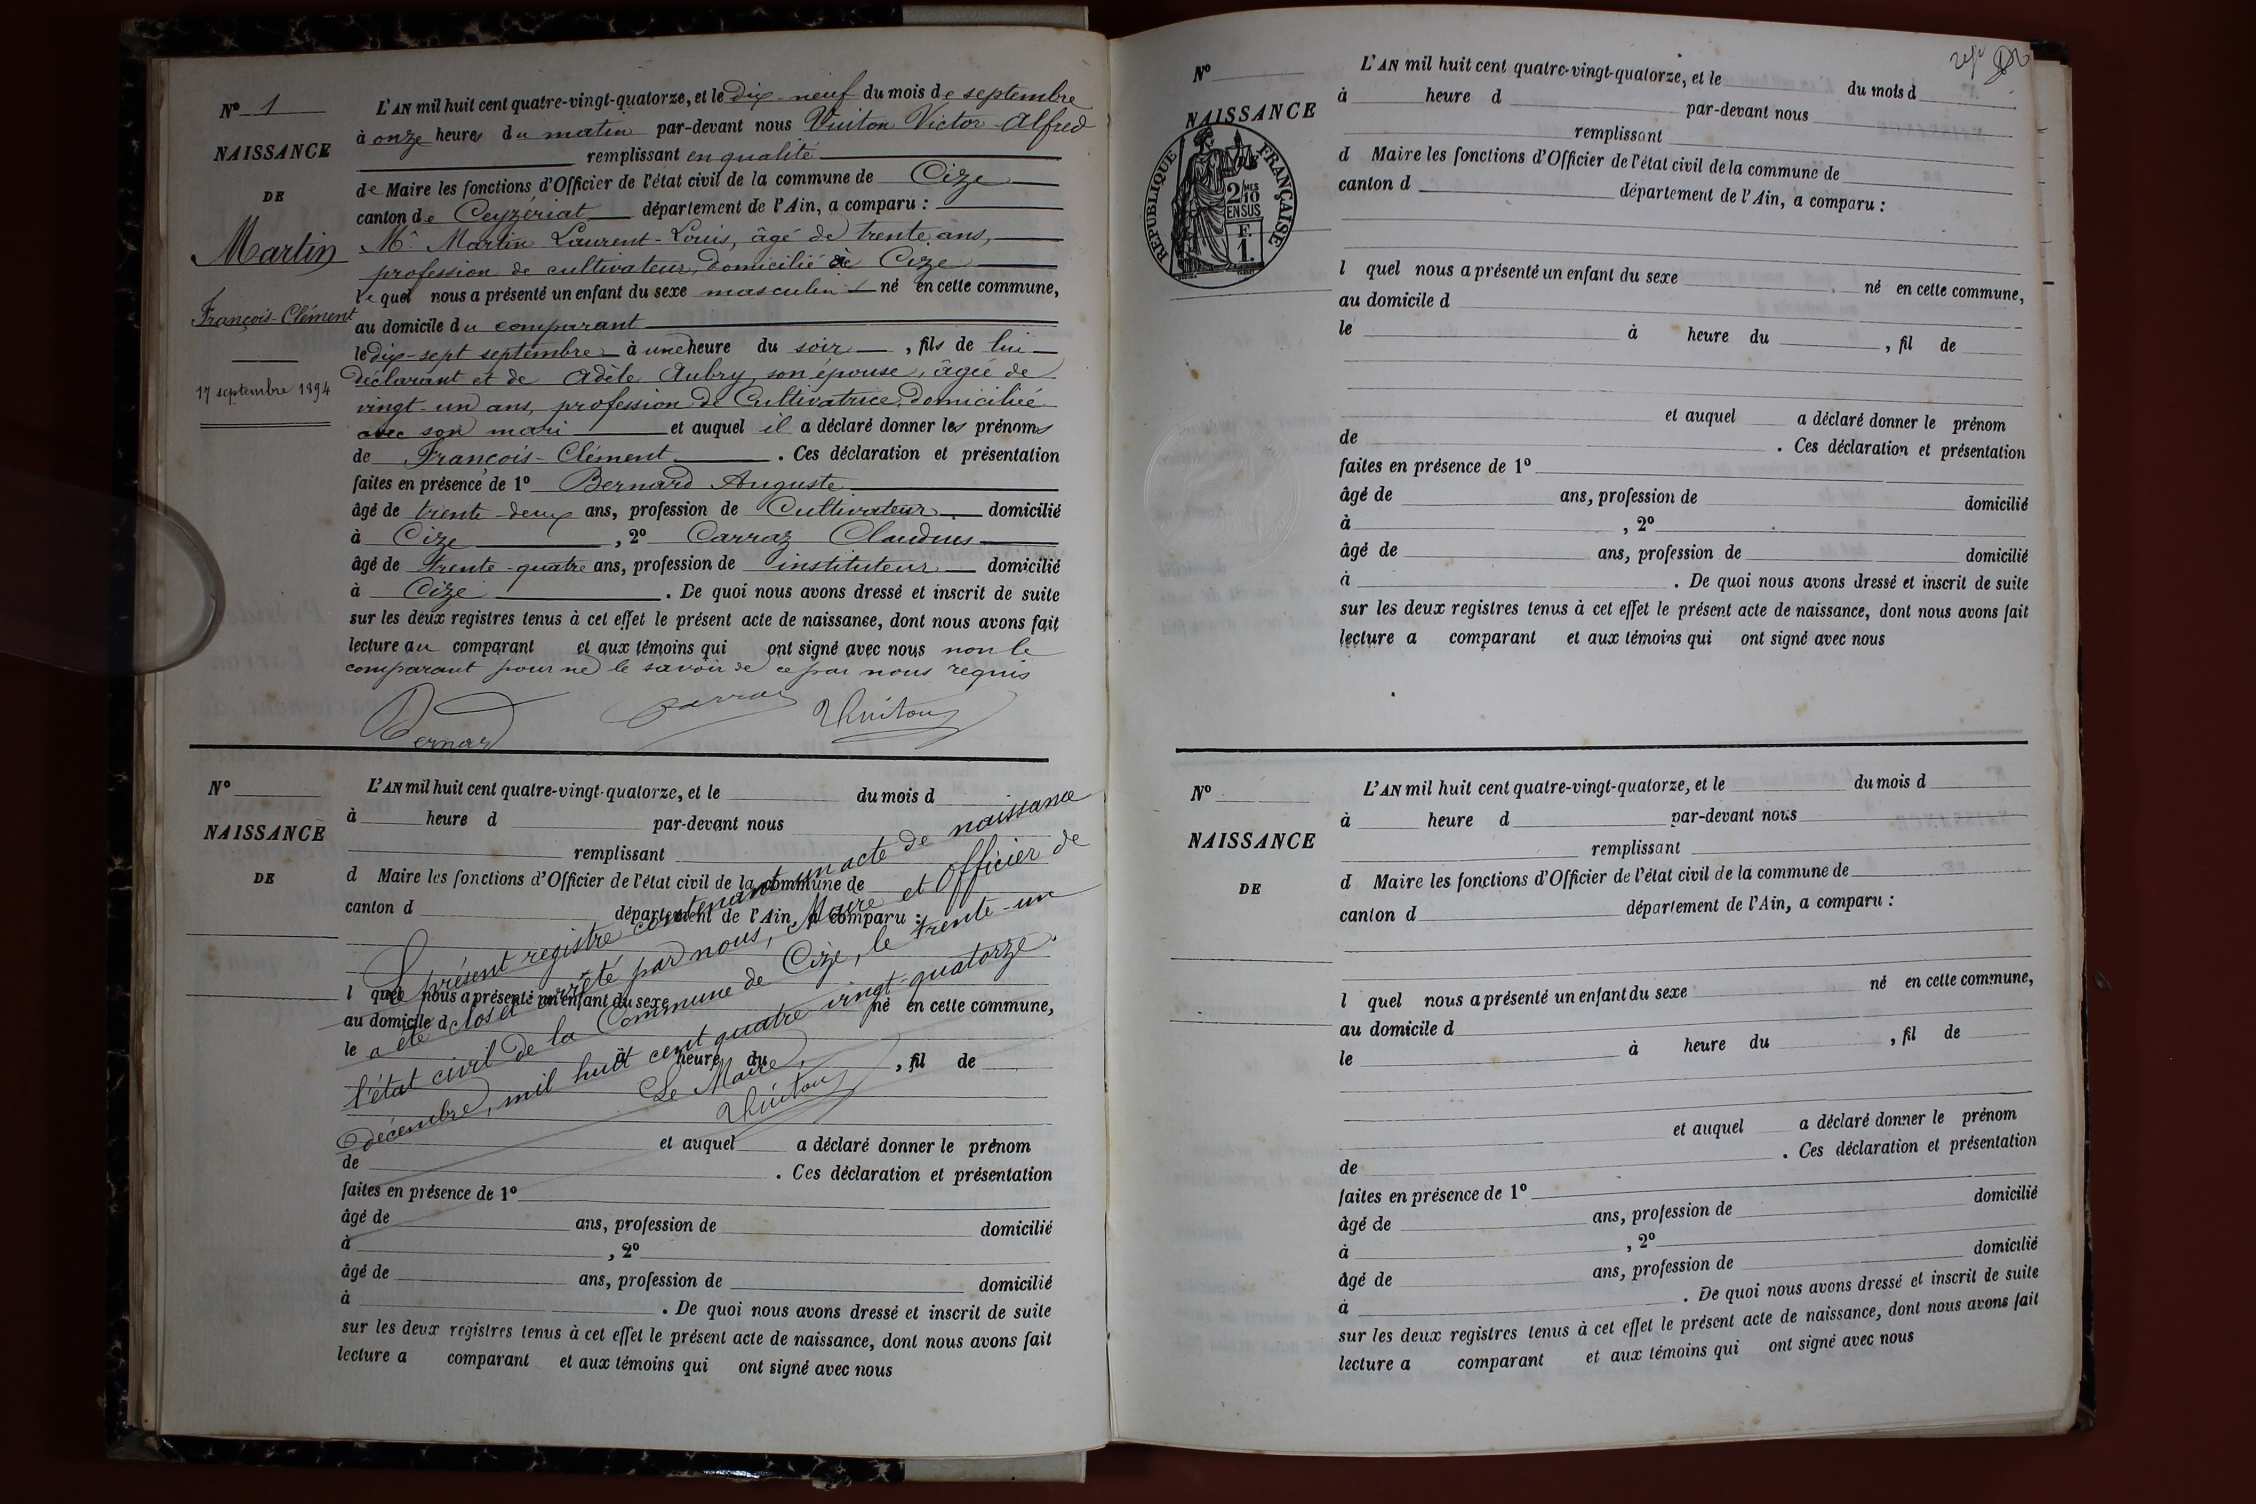 N° 1
NAISSANCE
DE
Martin
François-Clément
17 septembre 1894
L'AN mil huit cent quatre-vingt-quatorze, et le dix-neuf du mois de septembre
à onze heures du matin par-devant nous Vuiton Victor-Alfred
remplissant en qualité
de Maire les fonctions d'Officier de l'état civil de la commune de Cize
canton de Ceyzériat département de l'Ain, a comparu :
Mr Martin Laurent-Louis, âgé de trente ans,
profession de cultivateur, domicilié à Cize
Lequel nous a présenté un enfant du sexe masculin né en cette commune,
au domicile du comparant
le dix-sept septembre à une heure du soir, fils de lui
déclarant et de Adèle Aubry, son épouse, âgée de
vingt-un ans, profession de Cultivatrice, domiciliée
avec son mari et auquel il a déclaré donner les prénoms
de François-Clément. Ces déclaration et présentation
faites en présence de 1° Bernard Auguste
âgé de trente-deux ans, profession de Cultivateur domicilié
à Cize, 2° Carraz Claudius
âgé de trente-quatre ans, profession de instituteur domicilié
à Cize. De quoi nous avons dressé et inscrit de suite
sur les deux registres tenus à cet effet le présent acte de naissance, dont nous avons fait
lecture au comparant et aux témoins qui ont signé avec nous non le
comparant pour ne le savoir de ce par nous requis
Bernard Carraz Vuiton
N°
NAISSANCE
DE
L'AN mil huit cent quatre-vingt-quatorze, et le du mois d
à heure d par-devant nous
remplissant
d Maire les fonctions d'Officier de l'état civil de la commune de
canton d département de l'Ain, a comparu :
l quel nous a présenté un enfant du sexe né en cette commune,
au domicile d
le à heure du , fil de
et auquel a déclaré donner le prénom
de . Ces déclaration et présentation
faites en présence de 1°
âgé de ans, profession de domicilié
à , 2°
âgé de ans, profession de domicilié
à . De quoi nous avons dressé et inscrit de suite
sur les deux registres tenus à cet effet le présent acte de naissance, dont nous avons fait
lecture a comparant et aux témoins qui ont signé avec nous
Le présent registre contenant un acte de naissance
a été clos et arrêté par nous, Maire et Officier de
l'état civil de la Commune de Cize, le trente-un
décembre, mil huit cent quatre vingt-quatorze.
Le Maire,
Vuiton
N°
NAISSANCE
RÉPUBLIQUE FRANÇAISE
2/10 MES
EN SUS
F.
1.
L'AN mil huit cent quatre-vingt-quatorze, et le du mois d
à heure d par-devant nous
remplissant
d Maire les fonctions d'Officier de l'état civil de la commune de
canton d département de l'Ain, a comparu :
l quel nous a présenté un enfant du sexe né en cette commune,
au domicile d
le à heure du , fil de
et auquel a déclaré donner le prénom
de . Ces déclaration et présentation
faites en présence de 1°
âgé de ans, profession de domicilié
à , 2°
âgé de ans, profession de domicilié
à . De quoi nous avons dressé et inscrit de suite
sur les deux registres tenus à cet effet le présent acte de naissance, dont nous avons fait
lecture a comparant et aux témoins qui ont signé avec nous
N°
NAISSANCE
DE
L'AN mil huit cent quatre-vingt-quatorze, et le du mois d
à heure d par-devant nous
remplissant
d Maire les fonctions d'Officier de l'état civil de la commune de
canton d département de l'Ain, a comparu :
l quel nous a présenté un enfant du sexe né en cette commune,
au domicile d
le à heure du , fil de
et auquel a déclaré donner le prénom
de . Ces déclaration et présentation
faites en présence de 1°
âgé de ans, profession de domicilié
à , 2°
âgé de ans, profession de domicilié
à . De quoi nous avons dressé et inscrit de suite
sur les deux registres tenus à cet effet le présent acte de naissance, dont nous avons fait
lecture a comparant et aux témoins qui ont signé avec nous